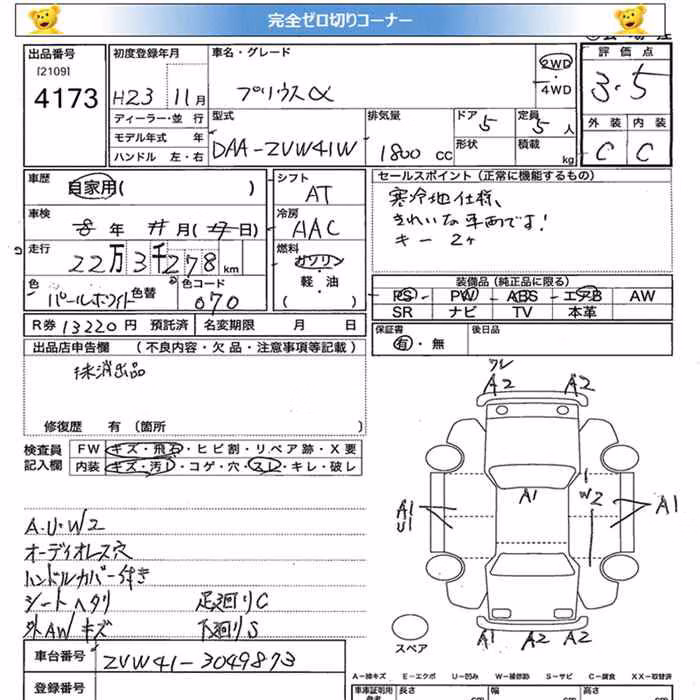 完全ゼロ切りコーナー
出品番号
[2109]
4173
初度登録年月
H23 11月
ディーラー・並行
モデル年式 年
ハンドル 左・右
車名・グレード
プリウスα
2WD
・
4WD
型式
DAA-ZVW41W
排気量
1800 cc
ドア 5
形状
定員 5 人
積載 kg
評価点
3.5
外装 内装
C C
車歴
自家用( )
車検
8年 11月(17日)
走行
22万3千278 km
色
パールホワイト 色替
色コード
070
シフト
AT
冷房
AAC
燃料
ガソリン
・
(軽・油)
R券 13220円 預託済 名変期限 月 日
セールスポイント(正常に機能するもの)
寒冷地仕様、
きれいな車両です!
キー 2ヶ
装備品(純正品に限る)
PS PW ABS エアB AW
SR ナビ TV 本革
保証書
有・無
後日品
出品店申告欄 (不良内容・欠品・注意事項等記載)
抹消出品
修復歴 有(箇所 )
検査員
記入欄
FW キズ・飛石・ヒビ割・リペア跡・X要
内装 キズ・汚レ・コゲ・穴・スレ・キレ・破レ
A・U・W2
オーディオレス穴
ハンドルカバー付き
シートヘタリ 足廻りC
外AWキズ 下廻りS
ワレ
A2 A2
A1
A1
U1
W2
A1
A1 A2 A2
スペア
車台番号 ZVW41-3049873
登録番号
A-線キズ E-エクボ U-凹み W-補修跡 S-サビ C-腐食 XX-取替済
車庫証明用 長さ 幅 高さ